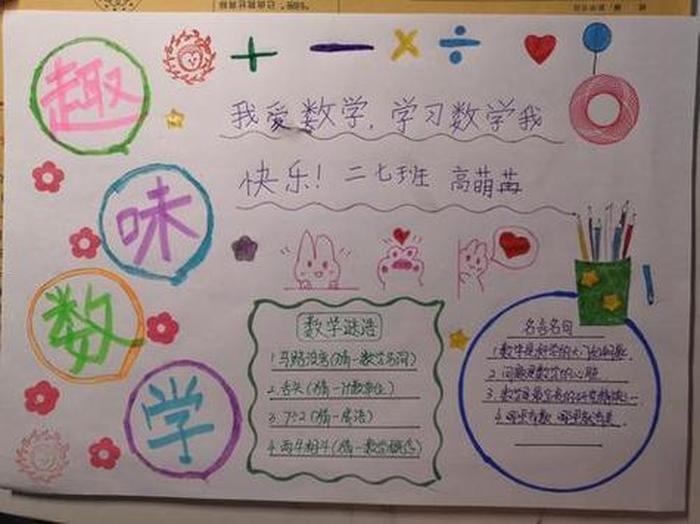 趣
味
数
学
+ — × ÷
我爱数学,学习数学我
快乐! 二七班 高萌苒
数学谜浩
1.马路没弯(猜一数学名词)
2.舌头(猜一计数单位)
3.7÷2(猜一成语)
4.两牛相斗(猜一数学概念)
名言名句
1.数学是科学的大门
2.问题是数学的心脏
3.数学是
4.哪里有数 哪里就有美